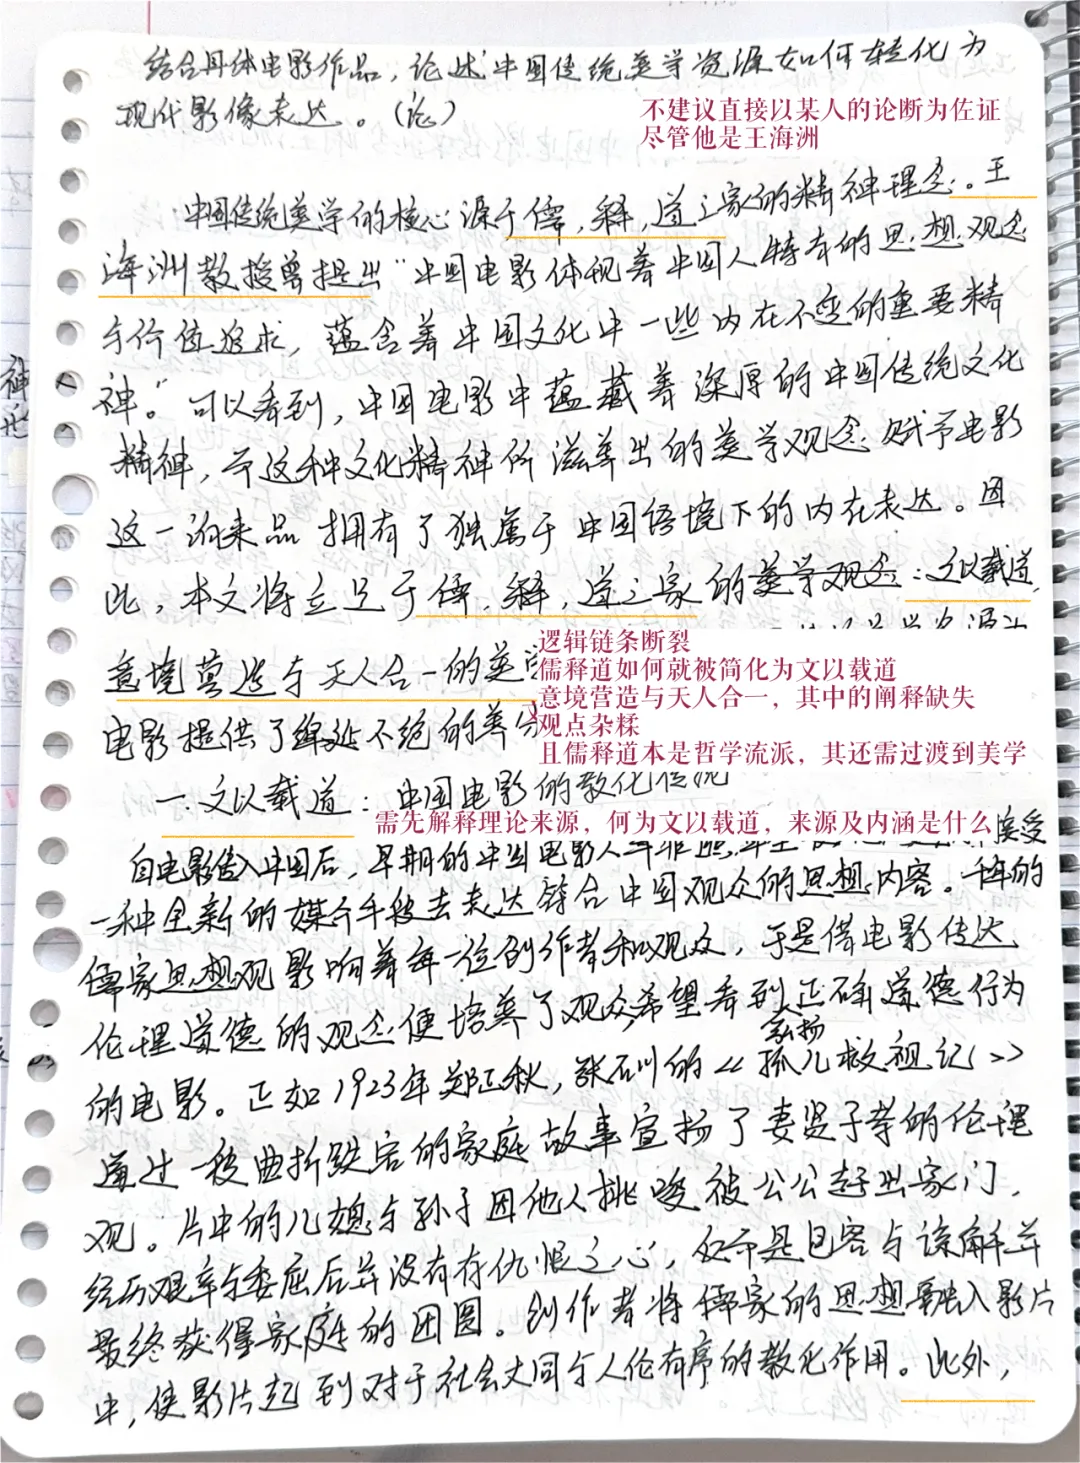 结合具体电影作品，论述中国传统美学资源如何转化为
现代影像表达。（论）
不建议直接以某人的论断为佐证
尽管他是王海洲
中国传统美学的核心源于儒，释，道三家的精神理念。王
海洲教授曾提出“中国电影体现着中国人特有的思想观念
与价值追求，蕴含着中国文化中一些内在不变的重要精
神。”可以看到，中国电影中蕴藏着深厚的中国传统文化
精神，而这种文化精神所滋养出的美学观念赋予电影
这一舶来品拥有了独属于中国语境下的内在表达。因
此，本文将立足于儒，释，道三家的美学观念：文以载道，
意境营造与天人合一的美学
逻辑链条断裂
儒释道如何就被简化为文以载道
意境营造与天人合一，其中的阐释缺失
观点杂糅
且儒释道本是哲学流派，其还需过渡到美学
电影提供了绵延不绝的养分
一.文以载道：中国电影的教化传统
需先解释理论来源，何为文以载道，来源及内涵是什么
自电影传入中国后，早期的中国电影人 接受
一种全新的媒介手段去表达符合中国观众的思想内容。千年的
儒家思想观影响着每一位创作者和观众，于是借电影传达
伦理道德的观念便培养了观众希望看到正确道德行为
的电影。正如1923年郑正秋，张石川的《孤儿救祖记》
弘扬
通过一段曲折跌宕的家庭故事宣扬了妻贤子孝的伦理
观。片中的儿媳与孙子因他人挑唆被公公赶出家门，
经历艰辛与委屈后并没有存仇恨之心，反而是包容与谅解并
最终获得家庭的团圆。创作者将儒家的思想融入影片
中，使影片起到对于社会大同与人伦有序的教化作用。此外，
神
形